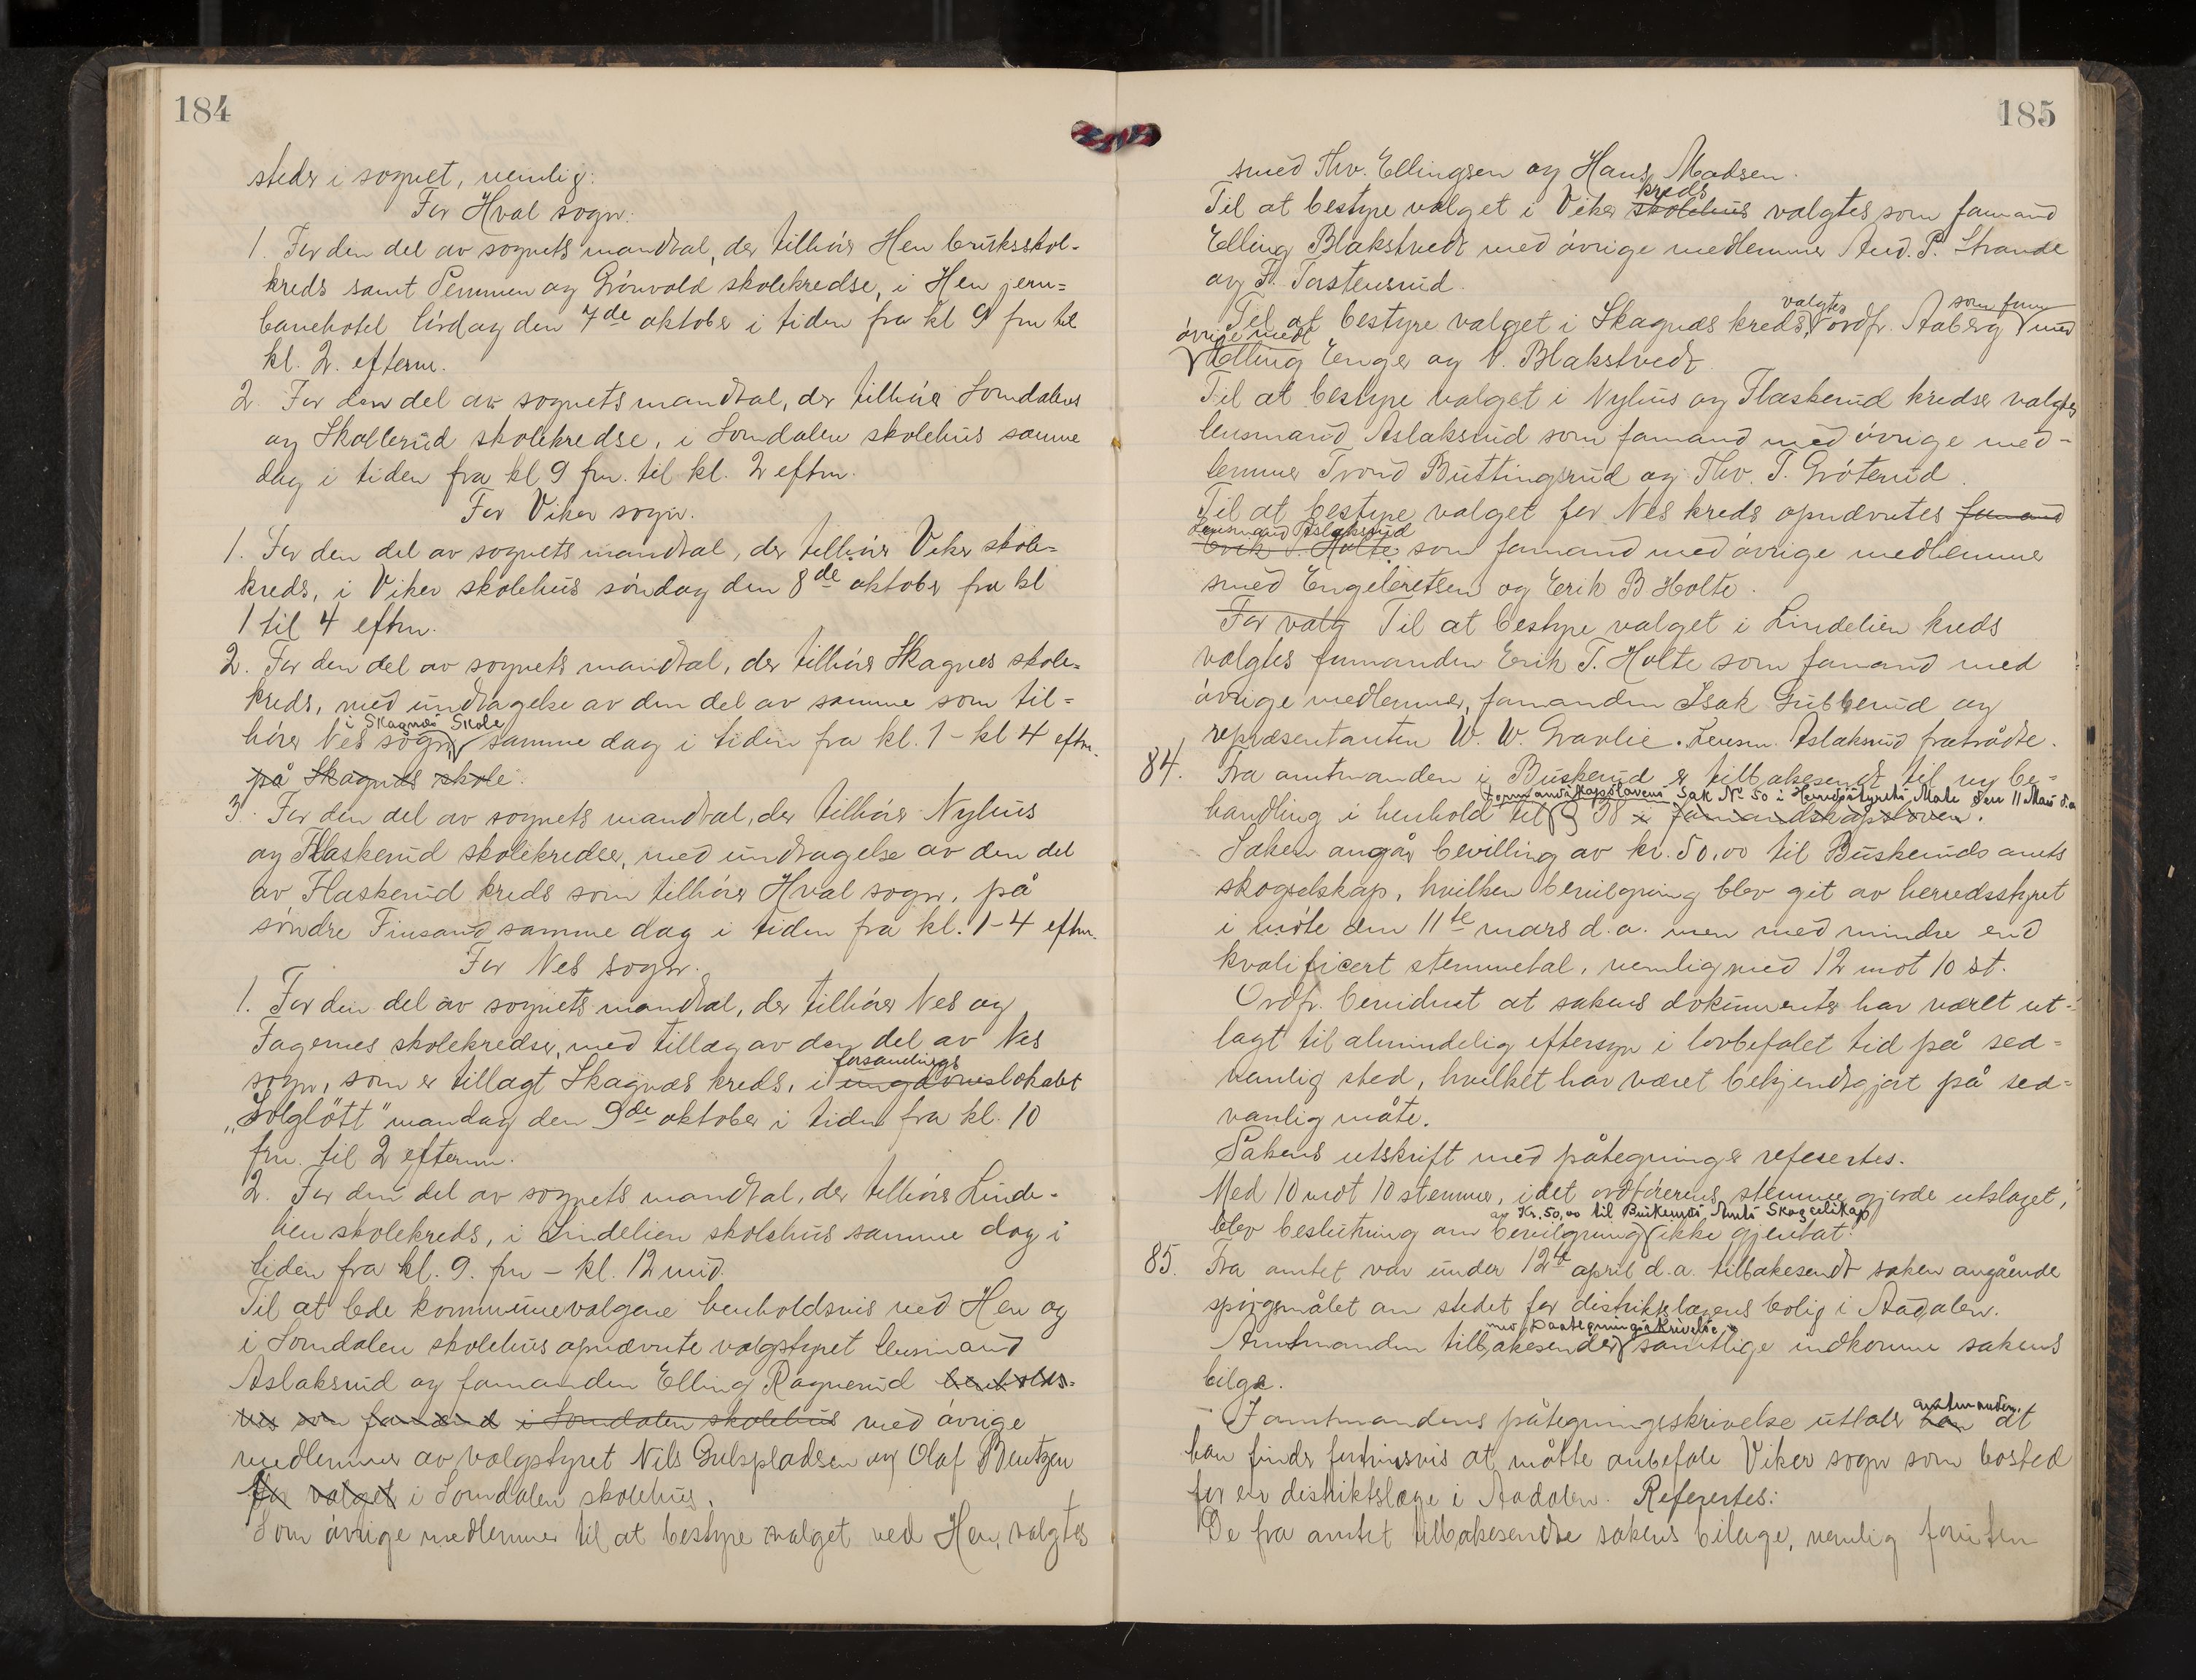 184
steder i sognet, nemlig:
For Hval sogn:
1. For den del av sognets mandtal, der tilhører Hen bruksskol-
kreds samt Semmen og Grönvold skolekredse, i Hen jern=
banehotel lördag den 7de oktober i tiden fra kl 9 fm til
kl. 2. efterm.
2. For den del av sognets mandtal, der tilhører Somdalens
og Skollerud skolekredse, i Somdalen skolehus samme
dag i tiden fra kl 9 fm. til kl. 2 eftm.
For Viker sogn.
1. For den del av sognets mandtal, der tilhører Viker skole=
kreds, i Viker skolehus söndag den 8de oktober fra kl
1 til 4 eftm.
2. For den del av sognets mandtal, der tilhører Skagnes skole=
kreds, med undtagelse av den del av samme som til=
i Skagnæs Skole
hører Nes sogn samme dag i tiden fra kl. 1 - kl 4 eftm.
på Skagnæs skole.
3. For den del av sognets mandtal, der tilhører Nylius
og Flaskerud skolekredse, med undtagelse av den del
av Flaskerud kreds som tilhører Hval sogn, på
söndre Finsand samme dag i tiden fra kl. 1-4 eftm.
For Nes sogn.
1. For den del av sognets mandtal, der tilhører Nes og
Fagernes skolekredser, med tillæg av den del av Nes
forsamlings
sogn, som er tillagt Skagnæs kreds, i ungdomslokalet
„Solglött" mandag den 9de oktober i tiden fra kl. 10
fm. til 2 efterm.
2. For den del av sognets mandtal, der tilhører Linde-
lien skolekreds, i Lindelien skolehus samme dag i
tiden fra kl. 9. fm - kl. 12 mid.
Til at lede kommunevalgene henholdsvis ved Hen og
i Somdalen skolehus opnævnte valgstyret lensmand
Aslaksrud og formanden Elling Ragnerud henholds=
vis som formand i Somdalen skolehus med övrige
medlemmer av valgstyret Nils Gulspladsen og Olaf Bentzen
for valget i Somdalen skolehus.
Som övrige medlemmer til at bestyre valget ved Hen, valgtes
185
smed Thv. Ellingsen og Hans Madsen.
kreds
Til at bestyre valget i Viker skolehus valgtes som formand
Elling Blakstvedt med övrige medlemmer And. P. Strande
og F. Torstensrud.
valgtes som form
Til at bestyre valget i Skagnæs kreds, ordf. Aaberg med
övrige medl
Elling Enger og N. Blakstvedt
Til at bestyre valget i Nylius og Flaskerud kredser valgtes
lensmand Aslaksrud som formand med övrige med-
lemmer Trond Buttingsrud og Thv. T. Gröterud.
Til at bestyre valget for Nes kreds opnævntes formand
Lensmand Aslaksrud
Erik T. Holte som formand med övrige medlemmer
smed Engebretsen og Erik B Holte.
For valg Til at bestyre valget i Lindelien kreds
valgtes formanden Erik T. Holte som formand med
övrige medlemmer, formanden Isak Gubberud og
repræsentanten W. W. Gravlie. Lensm. Aslaksrud fratrådte.
84. Fra amtmanden i Buskerud er tilbakesendt til ny be=
formandskapslovens Sak No 50 i Herredsstyrets Møte den 11 Mars d.a
handling i henhold til § 38 i formandskapsloven.
Saken angår bevilling av kr. 50,00 til Buskeruds amts
skogselskap, hvilken bevilgning blev git av herredsstyret
i möte den 11te mars d.a. men med mindre end
kvalificert stemmetal, nemlig med 12 mot 10 st.
Ordf. bevidnet at sakens dokumenter har været ut=
lagt til almindelig eftersyn i lovbefalet tid på sed=
vanlig sted, hvilket har været bekjendtgjort på sed=
vanlig måte.
Sakens utskrift med påtegninger refereertes.
Med 10 mot 10 stemmer, idet ordförerens stemme gjorde utslaget,
av Kr. 50,00 til Buskeruds Amts Skogselskap
blev beslutning om bevilgning ikke gjentat.
85. Fra amtet var under 12te april d.a. tilbakesendt saken angående
spörgsmålet om stedet for distriktslægens bolig i Aadalen.
med paategningsskrivelse
Amtmanden tilbakesender samtlige indkomne sakens
bilage.
amtmanden
I amtmandens påtegningsskrivelse uttaler han at
han finder fortrinsvis at måtte anbefale Viker sogn som bosted
for en distriktslæge i Aadalen. Referertes:
De fra amtet tilbakesendte sakens bilage, nemlig foruten